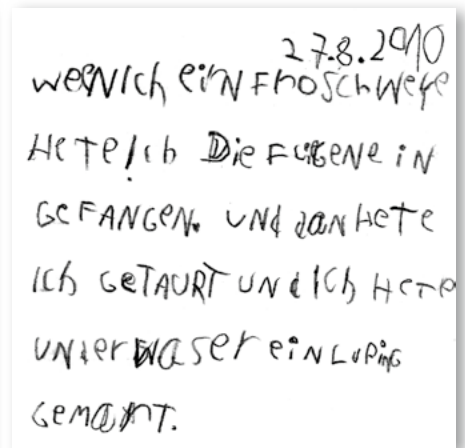 27.8.2010
WENN Ich EiN FROSCh WeRe
HeTe Ich Die FLIEGENe iN
GeFANGeN. UNd daN HeTe
ICh GeTAURT UNd ICh HeTe
UNter WaSer eiN LUPiNG
GeMaHT.